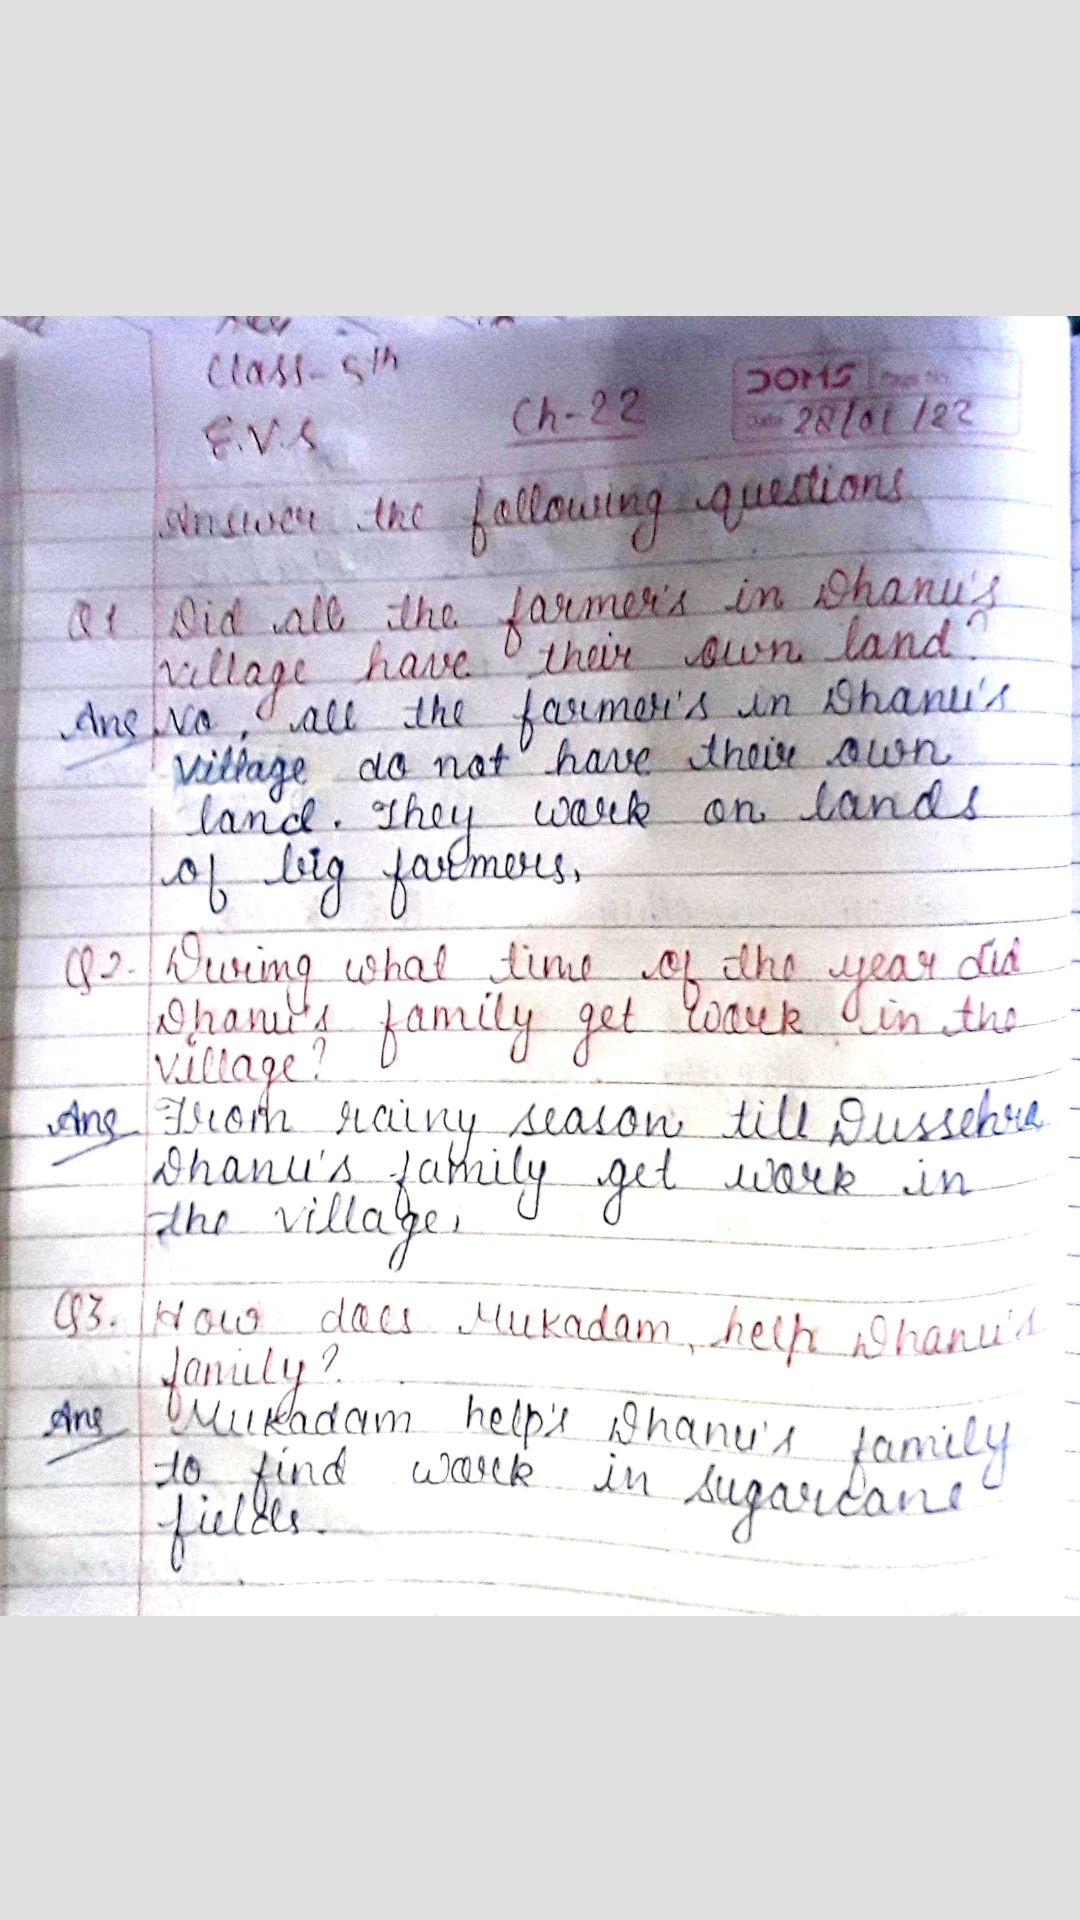 Class-5th
E.V.S
Ch-22
DOMS
Date 28/01/22
Answer the following questions
Q1 Did all the farmer's in Dhanu's
village have their own land?
Ans No, all the farmer's in Dhanu's
village do not have their own
land. They work on lands
of big farmers.
Q2. During what time of the year did
Dhanu's family get work in the
village?
Ans From rainy season till Dussehra
Dhanu's family get work in
the village.
Q3. How does Mukadam help Dhanu's
family?
Ans Mukadam help's Dhanu's family
to find work in sugarcane
fields.